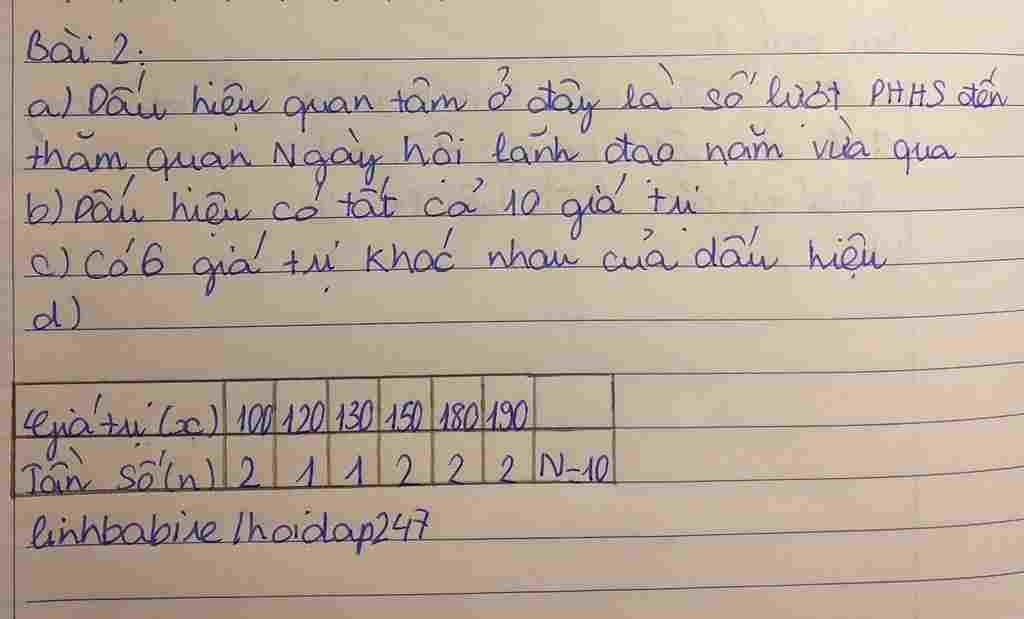 Bài 2:
a) Dấu hiệu quan tâm ở đây là số lượt PHHS đến
thăm quan Ngày hội lãnh đạo năm vừa qua
b) Dấu hiệu có tất cả 10 giá trị
c) Có 6 giá trị khác nhau của dấu hiệu
d)
Giá trị (x) 100 120 130 150 180 190
Tần số (n) 2 1 1 2 2 2 N=10
linhbabire/hoidap247